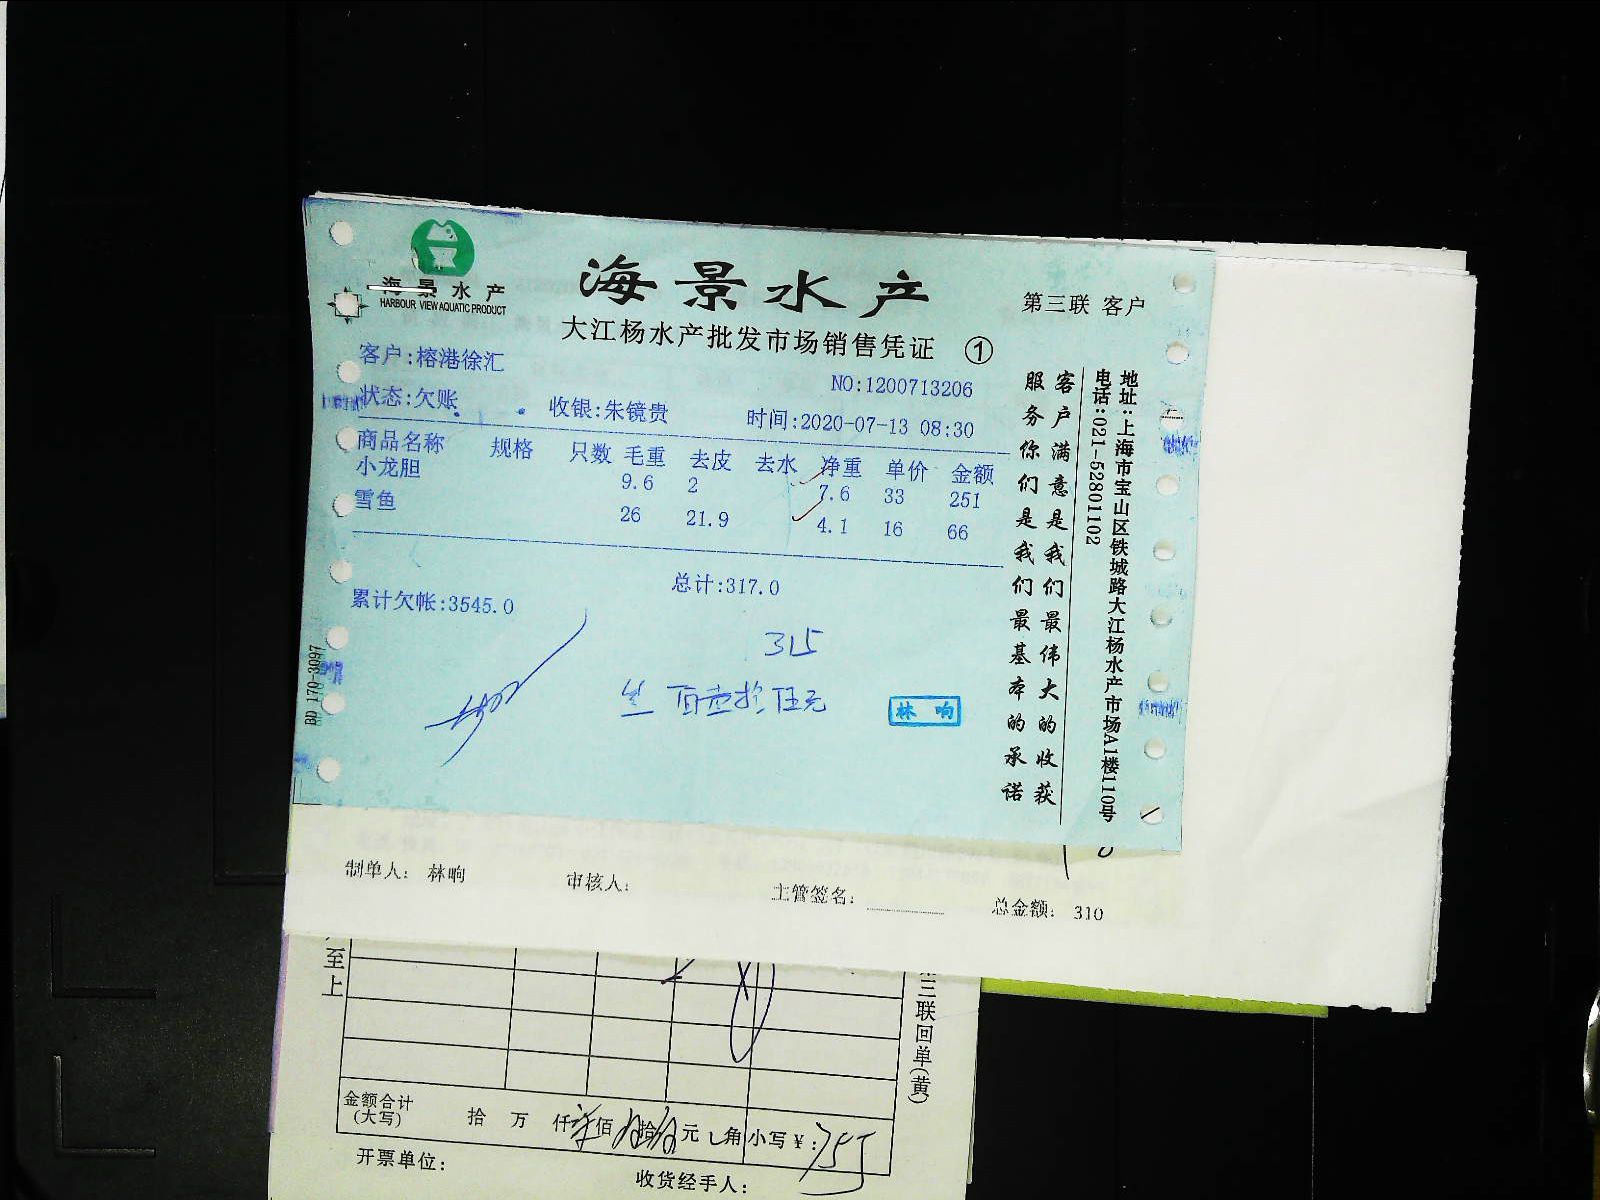 海景水产
HARBOUR VIEW AQUATIC PRODUCT
海景水产
第三联 客户
大江杨水产批发市场销售凭证 ①
客户:榕港徐汇
NO:1200713206
状态:欠账 收银:朱镜贵 时间:2020-07-13 08:30
商品名称 规格 只数 毛重 去皮 去水 净重 单价 金额
小龙胆 9.6 2 7.6 33 251
雪鱼 26 21.9 4.1 16 66
总计:317.0
累计欠帐:3545.0
315
百壹拾伍元
林响
客户满意是我们最伟大的收获
服务你们是我们最基本的承诺
地址:上海市宝山区铁城路大江杨水产市场A1楼110号
电话:021-52801102
BD 170-3097
制单人: 林响 审核人: 主管签名: 总金额: 310
至上
三联回单(黄)
金额合计
(大写)
拾 万 仟 佰 拾 元 角 小写¥:
开票单位:
收货经手人: